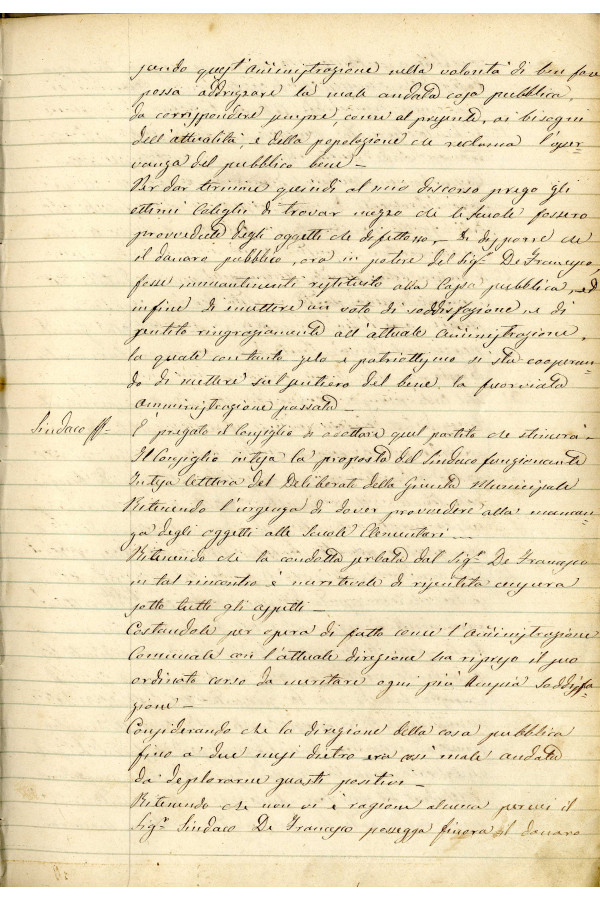 quest'Amministrazione nella volontà di ben fare
possa addrizzare la male andata cosa pubblica,
da corrispondere sempre, come al presente, ai bisogni
dell'attualità, e della popolazione che reclama l'osser-
vanza del pubblico bene —
Per dar termine quindi al mio discorso prego gli
ottimi Colleghi di trovar mezzo che le Scuole fossero
provvedute degli oggetti che difettano, di disporre che
il danaro pubblico, ora in potere del Sigr De Francesco,
fosse immantinenti restituito alla Cassa pubblica, ed
infine di emettere un voto di soddisfazione, e di
sentito ringraziamento all'attuale Amministrazione,
la quale con tanto zelo e patriottismo si sta cooperan-
do di mettere sul sentiero del bene la fuorviata
amministrazione passata —
Sindaco ff.
E' pregato il Consiglio di adottare quel partito che stimerà -
Il Consiglio intesa la proposta del Sindaco funzionante
Intesa lettura del Deliberato della Giunta Municipale
Ritenendo l'urgenza di dover provvedere alla mancan-
za degli oggetti alle Scuole Elementari —
Ritenendo che la condotta serbata dal Sigr De Francesco
in tal rincontro è meritevole di ripetuta censura
sotto tutti gli aspetti —
Costandole per opera di fatto come l'Amministrazione
Comunale con l'attuale direzione ha ripreso il suo
ordinato corso da meritare ogni più ampia soddisfa-
zione —
Considerando che la direzione della cosa pubblica
fino a due mesi dietro era così male andata
da deplorarne guasti positivi —
Ritenendo che non vi è ragione alcuna per cui il
Sigr Sindaco De Francesco possegga finora il danaro